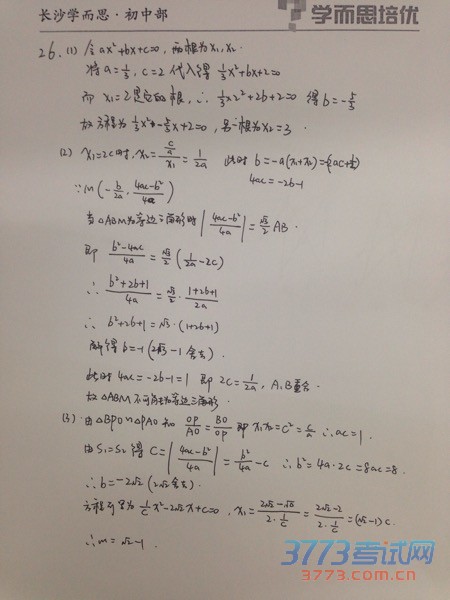 长沙学而思·初中部
学而思培优
26. (1) 令ax²+bx+c=0, 两根为x₁, x₂.
将a=1/3, c=2代入得 1/3x²+bx+2=0
而x₁=2是它的根, ∴ 1/3×2²+2b+2=0 得b=-5/3
故方程为1/3x²-5/3x+2=0, 另一根为x₂=3.
(2) x₁=2c时, x₂=(c/a)/x₁=1/2a 此时b=-a(x₁+x₂)=
4ac=-2b-1
∵M(-b/2a, (4ac-b²)/4a)
当△ABM为等边三角形时|(4ac-b²)/4a|=√3/2 AB.
即 (b²-4ac)/4a=√3/2(1/2a-2c)
∴ (b²+2b+1)/4a=√3/2·(1+2b+1)/2a
∴ b²+2b+1=√3·(1+2b+1)
解得b=-1 (2√3-1舍去).
此时4ac=-2b-1=1 即2c=1/2a, A、B重合.
故△ABM不可能为等边三角形.
(3) ∵由△BPO∽△PAO知 OP/AO=BO/OP 即x₁x₂=c²=c/a ∴ac=1.
由S₁=S₂得 c=|(4ac-b²)/4a|=b²/4a-c ∴b²=4a·2c=8ac=8.
∴b=-2√2 (2√2舍去).
方程可变为1/c x²-2√2x+c=0, x₁=(2√2-√8)/(2·1/c)=(2√2-2)/(2·1/c)=(√2-1)c.
∴m=√2-1.
3773考试网
3773.com.cn